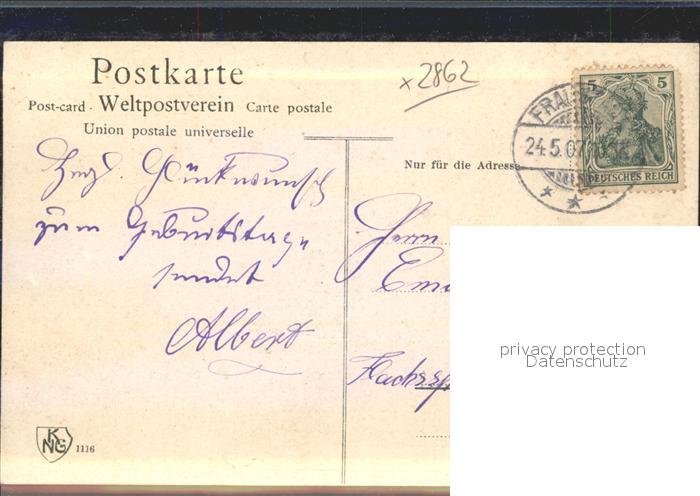 Postkarte
Post-card. Weltpostverein Carte postale
Union postale universelle
x 2862
5 5
24.5.07
DEUTSCHES REICH
Nur für die Adresse
Herzl. Glückwunsch
zum Geburtstage
sendet
Albert
Herrn
privacy protection
Datenschutz
KNG 1116